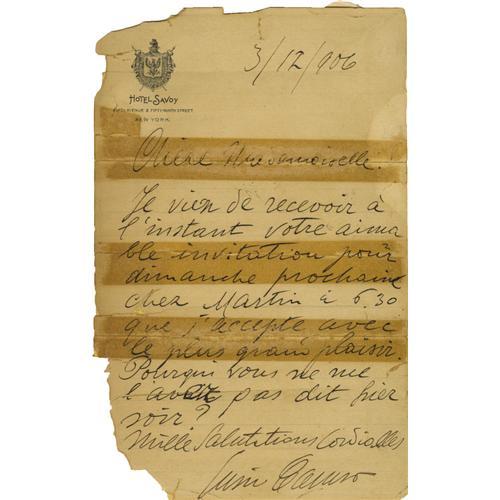 3/12/906
HOTEL SAVOY
FIFTH AVENUE & FIFTY-NINTH STREET
NEW YORK.
Chère Mademoiselle!
Je vien de recevoir à
l'instant votre aima
ble invitation pour
dimanche prochain
chez Martin à 6.30
que j'accepte avec
le plus grand plaisir.
Pourqui vous ne me
l'avez pas dit hier
soir?
Mille Salutations Cordialles
Caruso